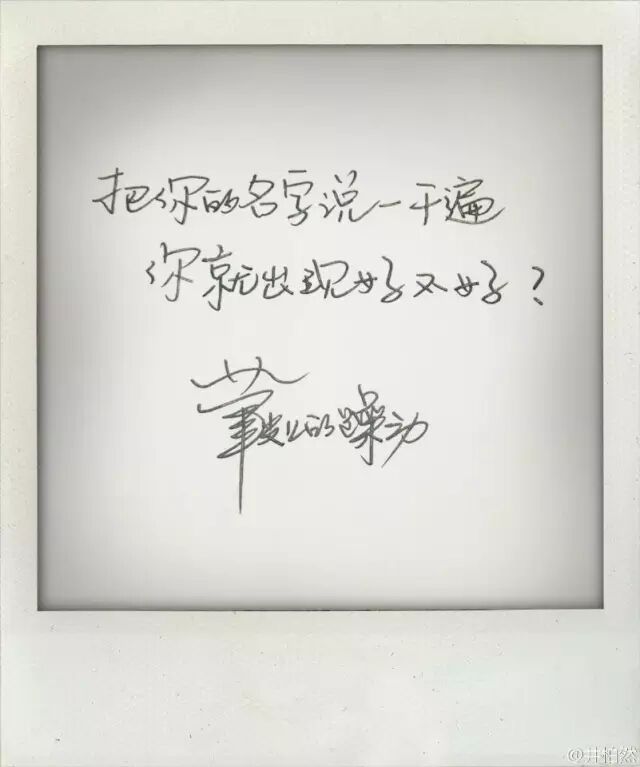 把你的名字说一千遍
你就出现好不好？
的躁动
@井柏然